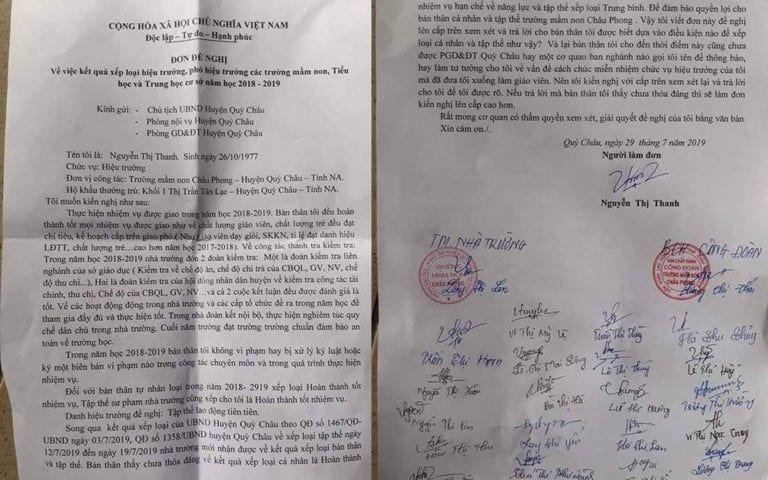 CỘNG HÒA XÃ HỘI CHỦ NGHĨA VIỆT NAM
Độc lập – Tự do – Hạnh phúc
ĐƠN ĐỀ NGHỊ
Về việc kết quả xếp loại hiệu trưởng, phó hiệu trưởng các trường mầm non, Tiểu
học và Trung học cơ sở năm học 2018 - 2019
Kính gửi: - Chủ tịch UBND Huyện Quỳ Châu
- Phòng nội vụ Huyện Quỳ Châu
- Phòng GD&ĐT Huyện Quỳ Châu
Tên tôi là: Nguyễn Thị Thanh. Sinh ngày 26/10/1977
Chức vụ: Hiệu trưởng
Đơn vị công tác: Trường mầm non Châu Phong – Huyện Quỳ Châu – Tỉnh NA.
Hộ khẩu thường trú: Khối 1 Thị Trấn Tân Lạc – Huyện Quỳ Châu – Tỉnh NA.
Tôi muốn kiến nghị như sau:
Thực hiện nhiệm vụ được giao trong năm học 2018-2019. Bản thân tôi đều hoàn
thành tốt mọi nhiệm vụ được giao như về chất lượng giáo viên, chất lượng trẻ đều đạt
chỉ tiêu, kế hoạch cấp trên giao phó.( Như giáo viên dạy giỏi, SKKN, tỉ lệ đạt danh hiệu
LĐTT, chất lượng trẻ…cao hơn năm học 2017-2018). Về công tác thanh tra kiểm tra:
Trong năm học 2018-2019 nhà trường đón 2 đoàn kiểm tra: Một là đoàn kiểm tra liên
nghành của sở giáo dục ( Kiểm tra về chế độ ăn, chế độ chi trả của CBQL, GV, NV, chế
độ thu chi..), Hai là đoàn kiểm tra của hội đồng nhân dân huyện về kiểm tra công tác tài
chính, thu chi, Chế độ của CBQL, GV, NV…và cả 2 cuộc kết luận đều được đánh giá là
tốt. Về các hoạt động động trong nhà trường và các cấp tổ chức đề ra trong năm học đề
tham gia đầy đủ và thực hiện tốt. Trong nhà đoàn kết nội bộ, thực hiện nghiêm túc quy
chế dân chủ trong nhà trường. Cuối năm trường đạt trường trường chuẩn đảm bảo an
toàn về trường học.
Trong năm học 2018-2019 bản thân tôi không vi phạm hay bị xử lý kỷ luật hoặc
ký một biên bản vi phạm nào trong công tác chuyên môn và trong quá trình thực hiện
nhiệm vụ.
Đối với bản thân tự nhân loại trong năm 2018- 2019 xếp loại Hoàn thành tốt
nhiệm vụ, Tập thể sư phạm nhà trường cũng xếp cho tôi là Hoàn thành tốt nhiệm vụ.
Danh hiệu trường đề nghị: Tập thể lao động tiên tiến.
Song qua kết quả xếp loại của UBND Huyện Quỳ Châu theo QĐ số 1467/QĐ-
UBND ngày 03/7/2019, QĐ số 1358/UBND huyện Quỳ Châu về xếp loại tập thể ngày
12/7/2019 đến ngày 19/7/2019 nhà trường mới nhận được về kết quả xếp loại bản thân
và tập thể. Bản thân thấy chưa thỏa đáng về kết quả xếp loại cá nhân là Hoàn thành
nhiệm vụ hạn chế về năng lực và tập thể xếp loại Trung bình. Để đảm bảo quyền lợi cho
bản thân cá nhân và tập thể trường mầm non Châu Phong . Vậy tôi viết đơn này đề nghị
lên cấp trên xem xét và trả lời cho bản thân tôi được biết dựa vào điều kiện nào để xếp
loại cá nhân và tập thể như vậy? Vả lại bản thân tôi cho đến thời điểm này cũng chưa
được PGD&ĐT Quỳ Châu hay một cơ quan ban nghành nào gọi tôi lên để thông báo,
hay làm tư tưởng cho tôi về vấn đề cách chức miễn nhiệm chức vụ hiệu trưởng của tôi
mà đã đưa tôi xuống làm giáo viên. Nên tôi kiến nghị với cấp trên xem xét lại và trả lời
cho tôi để tôi được rõ. Nếu trả lời mà bản thân tôi thấy chưa thỏa đáng thì sẽ làm đơn
kiến nghị lên cấp cao hơn.
Rất mong cơ quan có thẩm quyền xem xét, giải quyết đề nghị của tôi bằng văn bản
Xin cảm ơn./.
Quỳ Châu, ngày 29 tháng 7 năm 2019
Người làm đơn
Nguyễn Thị Thanh
TM NHÀ TRƯỜNG
BCH CÔNG ĐOÀN
TRƯỜNG
MẦM NON
CHÂU PHONG
BAN CHẤP HÀNH
CÔNG ĐOÀN
TRƯỜNG MẦM NON
CHÂU PHONG
Vi Thị Mỹ Lệ
Trần Thị Hoan
Lê Thị Thúy
Nguyễn Thị Xuân